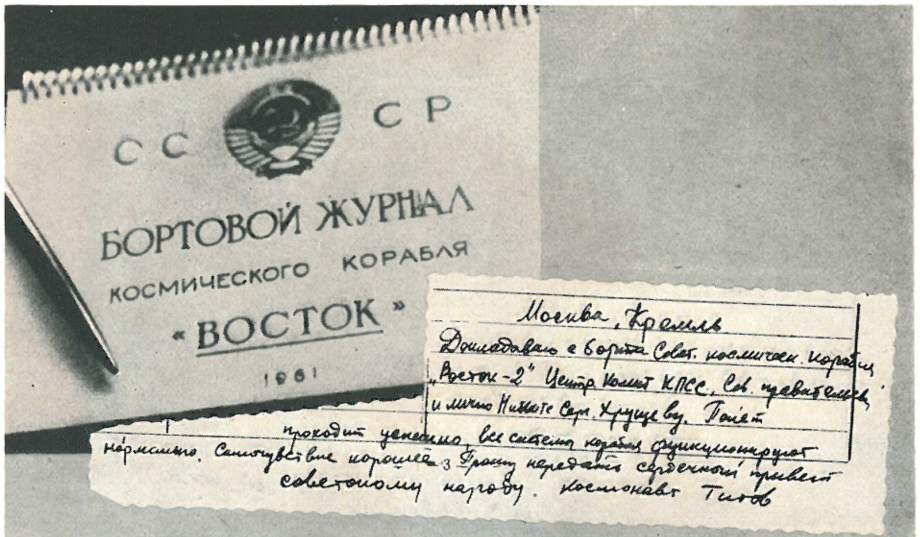 СССР
БОРТОВОЙ ЖУРНАЛ
КОСМИЧЕСКОГО КОРАБЛЯ
«ВОСТОК»
1961
Москва, Кремль
Докладываю с борта Совет. космическ. корабля
„Восток-2" Центр. Комит КПСС, Сов. правительству
и лично Никите Серг. Хрущеву. Полёт
проходит успешно, все системы корабля функционируют
нормально. Самочувствие хорошее. Прошу передать сердечный привет
советскому народу. Космонавт Титов